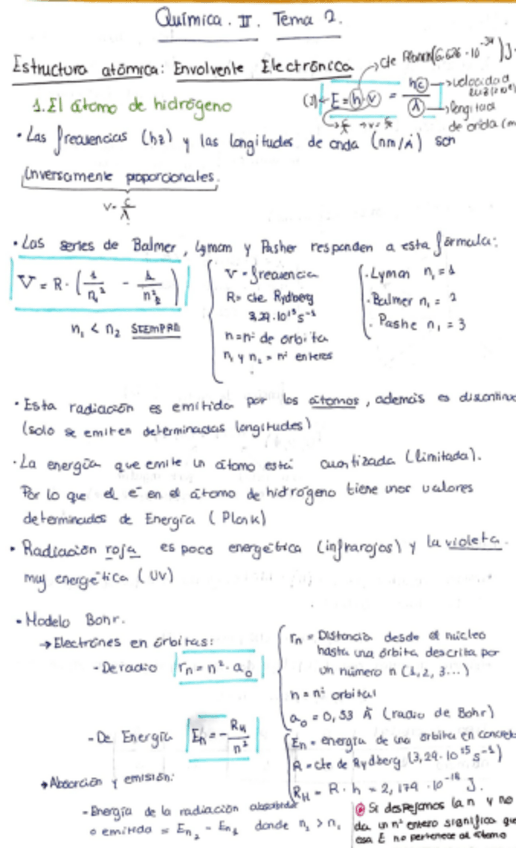 Química. II. Tema 2.
Estructura atómica: Envolvente Electrónica
cte Planck (6.626 · 10⁻³⁴) J·
(J) ← E = h · ν = hc / λ
→ velocidad luz
→ longitud de onda (m
ν = c/λ
1. El átomo de hidrógeno
• Las frecuencias (hz) y las longitudes de onda (nm/Å) son
inversamente proporcionales.
ν = c/λ
• Las series de Balmer, Lyman y Pasher responden a esta fórmula:
V = R · (1/n₁² - 1/n₂²)
n₁ < n₂ SIEMPRE
V = frecuencia
R = cte Rydberg
3,29 · 10¹⁵ s⁻¹
n = nº de orbita
n₁ y n₂ = nº enteros
· Lyman n₁ = 1
· Balmer n₁ = 2
· Pashe n₁ = 3
• Esta radiación es emitida por los átomos, además es discontinua
(solo se emiten determinadas longitudes)
· La energía que emite un átomo está cuantizada (limitada).
Por lo que el e⁻ en el átomo de hidrógeno tiene unos valores
determinados de Energía (Plank)
• Radiación roja es poco energética (infrarojos) y la violeta
muy energética (UV)
• Modelo Bohr.
→ Electrones en órbitas:
- De radio rₙ = n² · a₀
- De Energía Eₙ = - R_H / n²
rₙ = Distancia desde el núcleo
hasta una órbita descrita por
un número n (1, 2, 3...)
n = nº orbital
a₀ = 0,53 Å (radio de Bohr)
Eₙ = energía de una orbita en concreto
R = cte de Rydberg (3,29 · 10¹⁵ s⁻¹)
R_H = R · h = 2,179 · 10⁻¹⁸ J.
→ Absorción y emisión:
- Energía de la radiación absorbida
o emitida = Eₙ₂ - Eₙ₁ donde n₂ > n₁
Si despejamos la n y no
da un nº entero significa que
esa E no pertenece al átomo